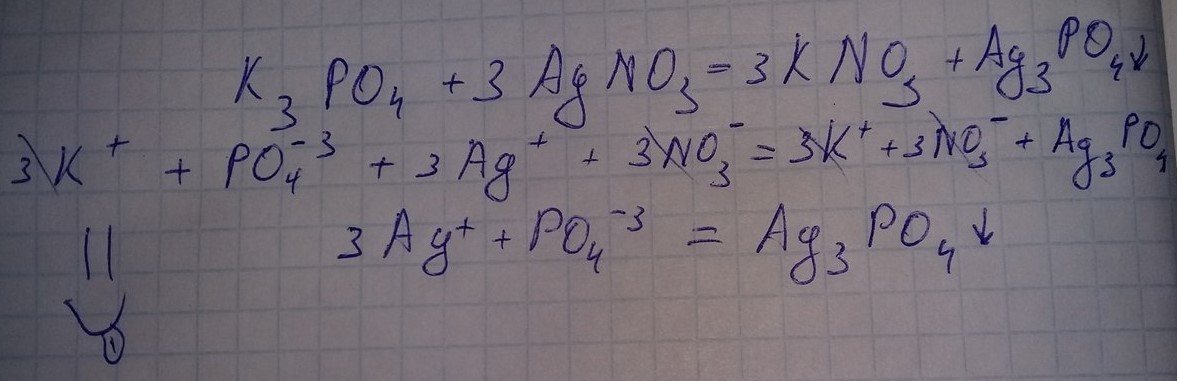 K₃PO₄ + 3AgNO₃ = 3KNO₃ + Ag₃PO₄↓
3K⁺ + PO₄⁻³ + 3Ag⁺ + 3NO₃⁻ = 3K⁺ + 3NO₃⁻ + Ag₃PO₄
3Ag⁺ + PO₄⁻³ = Ag₃PO₄↓
1